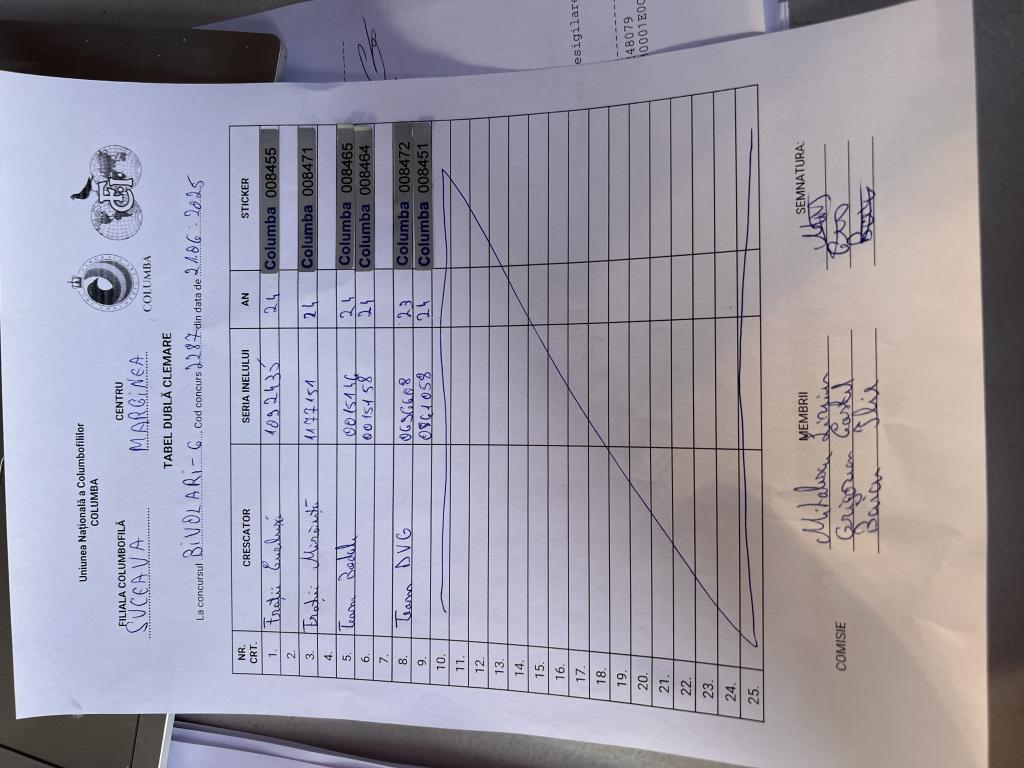 Uniunea Națională a Columbofililor
COLUMBA
COLUMBA
FILIALA COLUMBOFILĂ CENTRU
SUCEAVA MARGINEA
TABEL DUBLĂ CLEMARE
La concursul BIVOLARI-6, Cod concurs 2287 din data de 21.06.2025
NR. CRT. CRESCATOR SERIA INELULUI AN STICKER
1. Frații 1092435 24 Columba 008455
2.
3. Frații 1177151 24 Columba 008471
4.
5. Team 24 Columba 008465
6. 0015158 24 Columba 008464
7.
8. Team DVG 23 Columba 008472
9. 0861058 24 Columba 008451
10.
11.
12.
13.
14.
15.
16.
17.
18.
19.
20.
21.
22.
23.
24.
25.
COMISIE MEMBRII SEMNATURA:
esigilare
48079
0001E0C